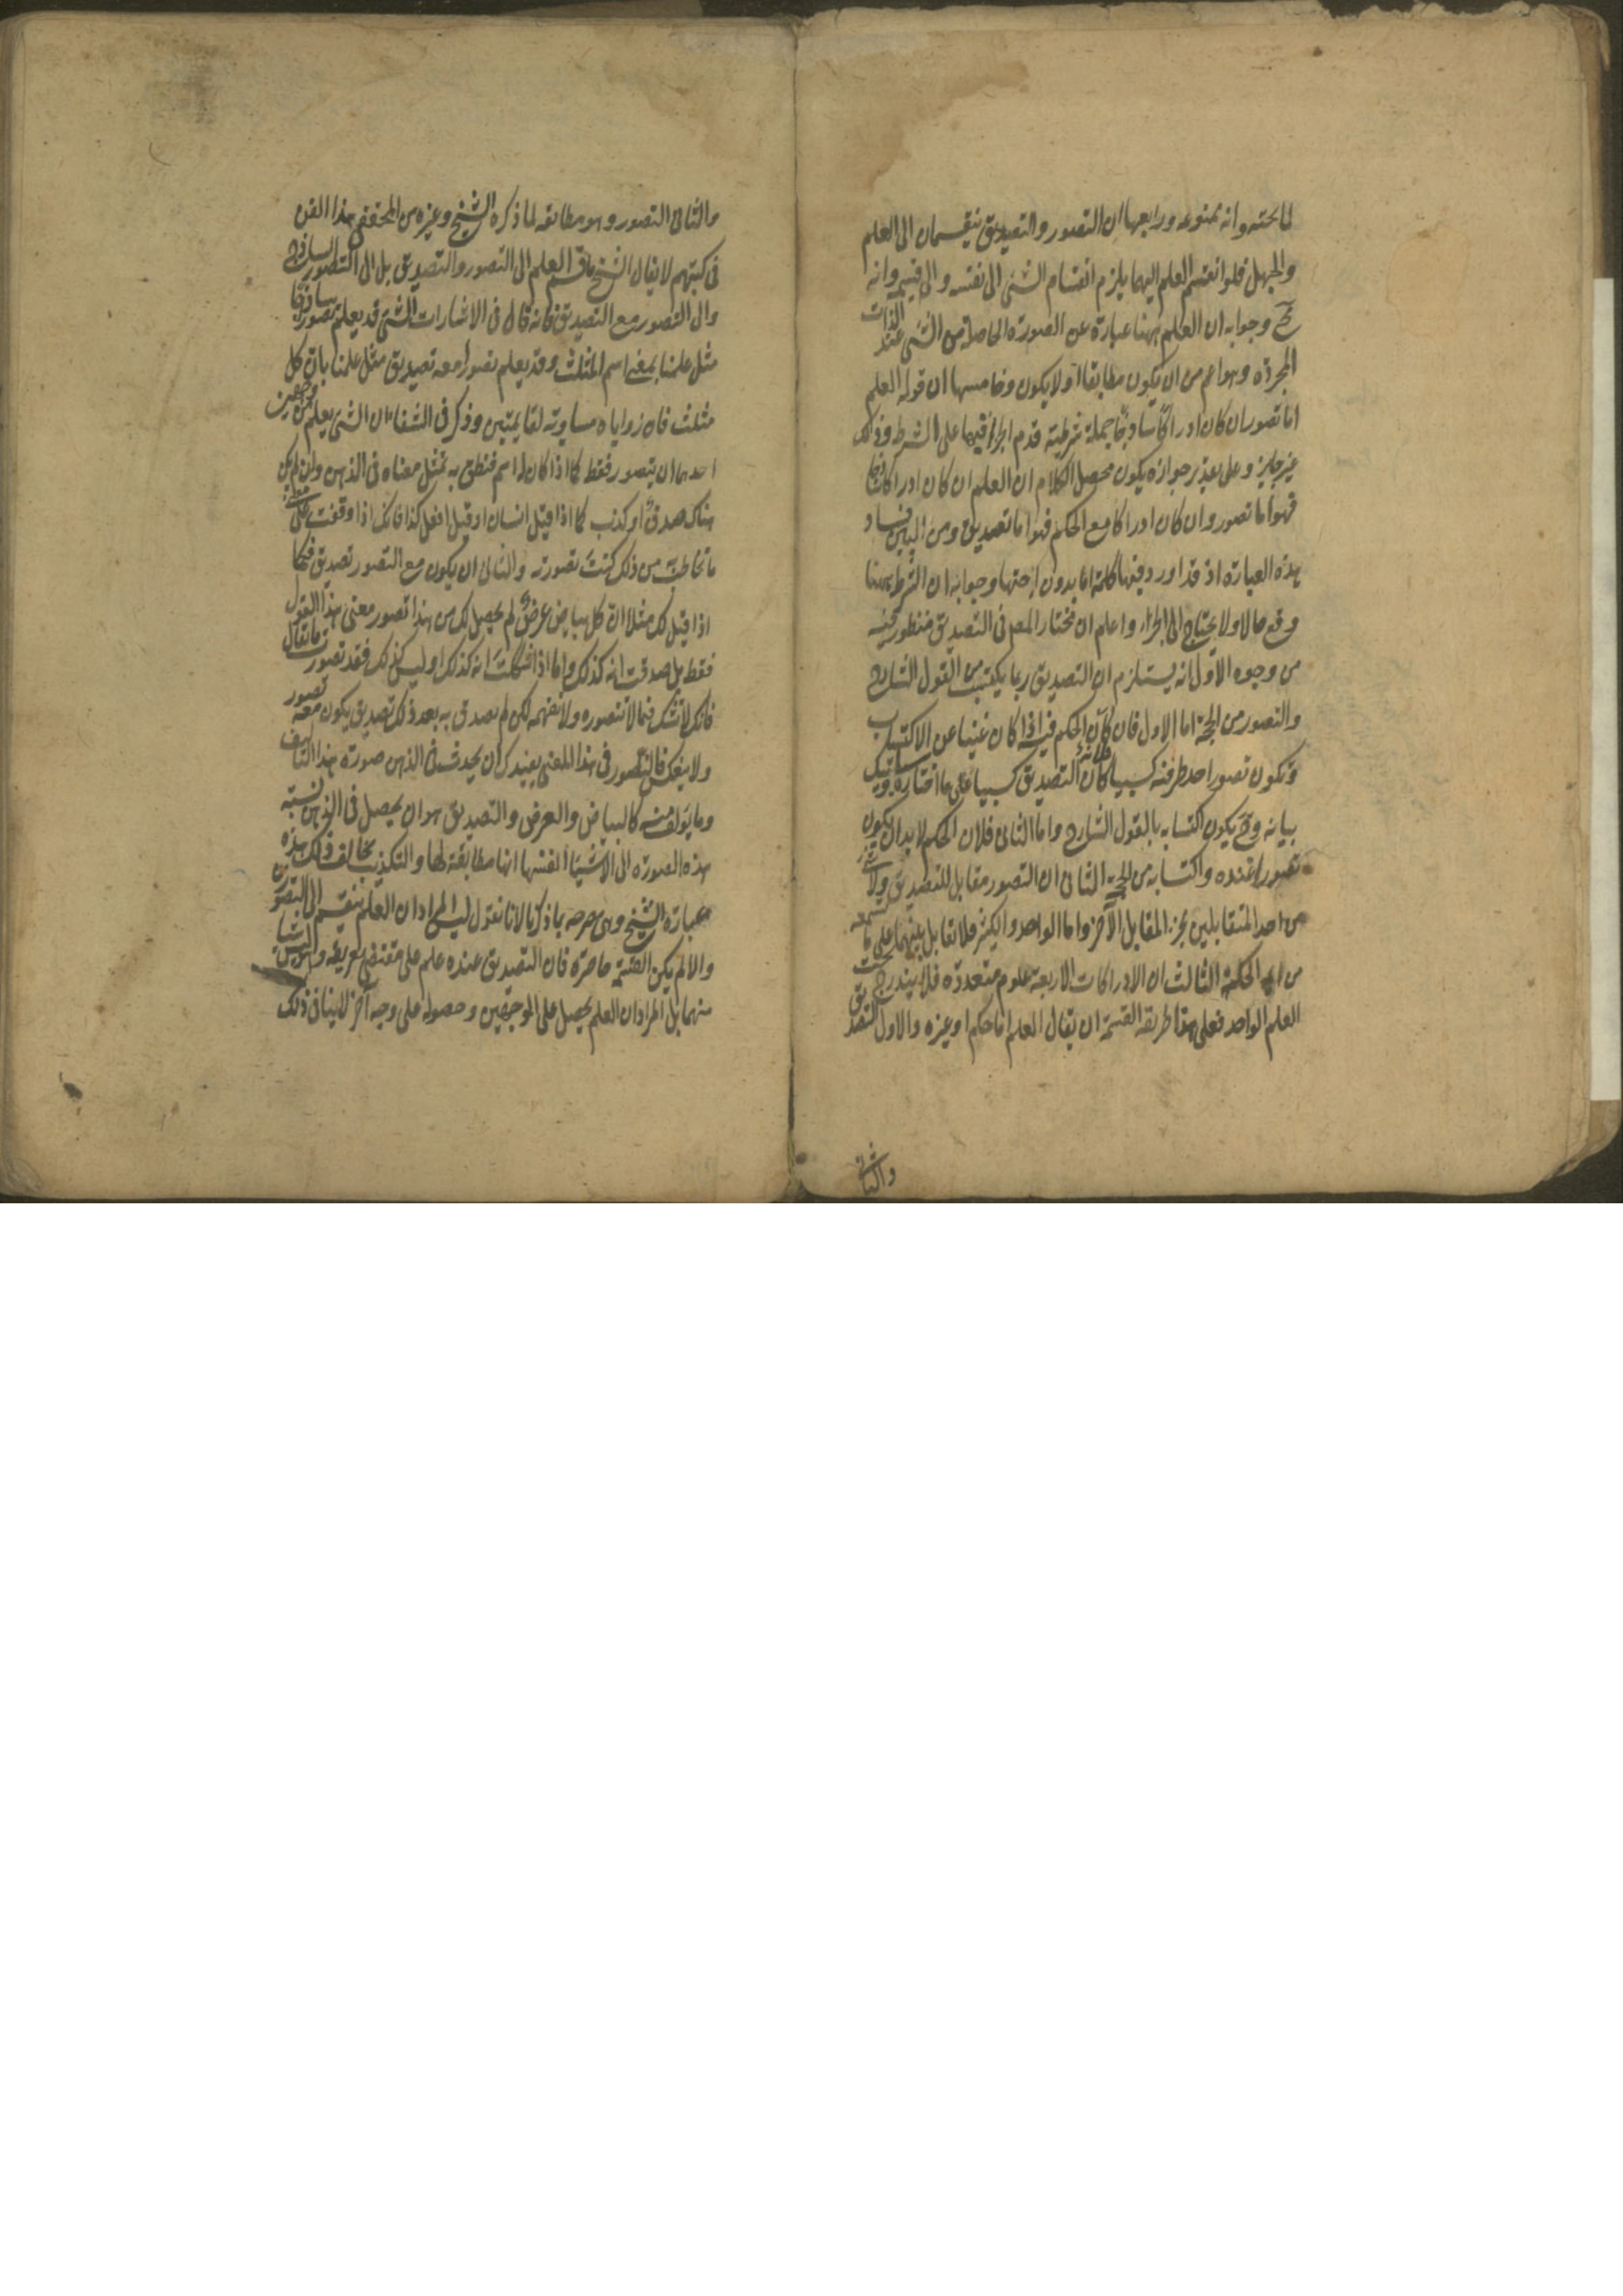 لما تحته وانه ممنوعه ورابعها ان التصور والتصديق ينقسمان الى العلم
والجهل فلو انقسم العلم اليهما يلزم انقسام الشئ الى نفسه والى قسيمه وانه
مح وجوابه ان العلم ههنا عبارة عن الصورة الحاصلة من الشئ عند الذات
المجردة وهو اعم من ان يكون مطابقا او لا يكون وخامسها ان قوله العلم
اما تصور ان كان ادراكا ساذجا جملة شرطية قدم الجزاء فيها على الشرط وذلك
غير جايز وعلى تقدير جوازه يكون محصل الكلام ان العلم ان كان ادراكا ساذجا
فهو اما تصور وان كان ادراكا مع الحكم فهو اما تصديق ومن البين فساد
هذه العبارة اذ قد اورد فيها كلمة اما بدون اختها وجوابه ان الشرط ههنا
وقع حالا ولا يحتاج الى الجزاء واعلم ان مختار المص فى التصديق منظور فيه
من وجوه الاول انه يستلزم ان التصديق ربما يكتسب من القول الشارح
والتصور من الحجة اما الاول فلان الحكم فيه اذا كان غنيا عن الاكتساب
ويكون تصور احد طرفيه كسبيا كان التصديق كسبيا على ما اختاره وسياتيك
بيانه وح يكون اكتسابه بالقول الشارح واما الثانى فلان الحكم لا بد ان يكون
تصورا عنده واكتسابه من الحجة الثانى ان التصور مقابل للتصديق ولا شئ
من احد المتقابلين بجزء المقابل الآخر واما الواحد والكثير فلا تقابل بينهما على ما تسمعه
من الحكمة الثالث ان الادراكات الاربعة علوم متعددة فلا يندرج تحت
العلم الواحد فعلى هذا طريقة القسمة ان يقال العلم اما حكم او غيره والاول التصديق
والثانى
والثانى التصور وهو مطابقه لما ذكره الشيخ وغيره من المحققى هذا الفن
فى كتبهم لا يقال الشيخ ما قسم العلم الى التصور والتصديق بل الى التصور الساذج
والى التصور مع التصديق فانه قال فى الاشارات الشئ قد يعلم تصورا ساذجا
مثل علمنا بمعنى اسم المثلث وقد يعلم تصورا معه تصديق مثل علمنا بان كل
مثلث فان زواياه مساوية لقايمتين وذكر فى الشفاء ان الشئ يعلم من وجهين
احدهما ان يتصور فقط كما اذا كان له اسم فنطق به تمثل معناه فى الذهن وان لم يكن
هناك صدق او كذب كما اذا قيل انسان او قيل افعل كذا فانك اذا وقفت على معنى
ما تخاطب من ذلك كنت تصورته والثانى ان يكون مع التصور تصديق فكما
اذا قيل لك مثلا ان كل بياض عرض لم يحصل لك من هذا تصور معنى هذا القول
فقط بل صدقت انه كذلك واما اذا شككت انه كذلك او ليس كذلك فقد تصورت ما يقال
فانك لا تشك فيما لا تتصوره ولا تفهمه لكن لم تصدق به بعد ذلك تصديق يكون معه تصور
ولا ينعكس فالتصور فى هذا المعنى يفيدك ان يحدث فى الذهن صورة هذا التاليف
وما يؤلف منه كالبياض والعرض والتصديق هو ان يحصل فى الذهن نسبة
هذه الصورة الى الاشياء انفسها انها مطابقة لها والتكذيب يخالف ذلك هذه
عبارة الشيخ وهى صرحه بما ذكرنا لانا نقول ليس المراد ان العلم ينقسم الى التصورين
والا لم يكن القسمة حاصرة فان التصديق عنده علم على مقتضى تعريفه وليس شيئا
منهما بل المراد ان العلم يحصل على الوجهين وحصوله على وجه آخر لا ينافى ذلك